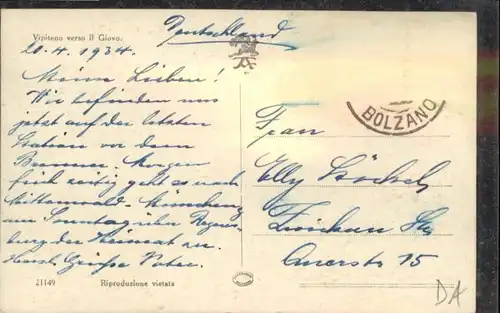 Vipiteno verso Il Giovo.
20.4.1934.
Meine Lieben!
Wir befinden uns
jetzt auf der letzten
Station vor dem
Brenner. Morgen
früh zeitig geht es nach
Mittenwald - München
am Sonntag über Regens-
burg der Heimat zu.
Herzl. Grüße Vater.
21149 Riproduzione vietata
Deutschland
BOLZANO
Frau
Elly
Zwickau Sa.
Auerstr. 15
DA